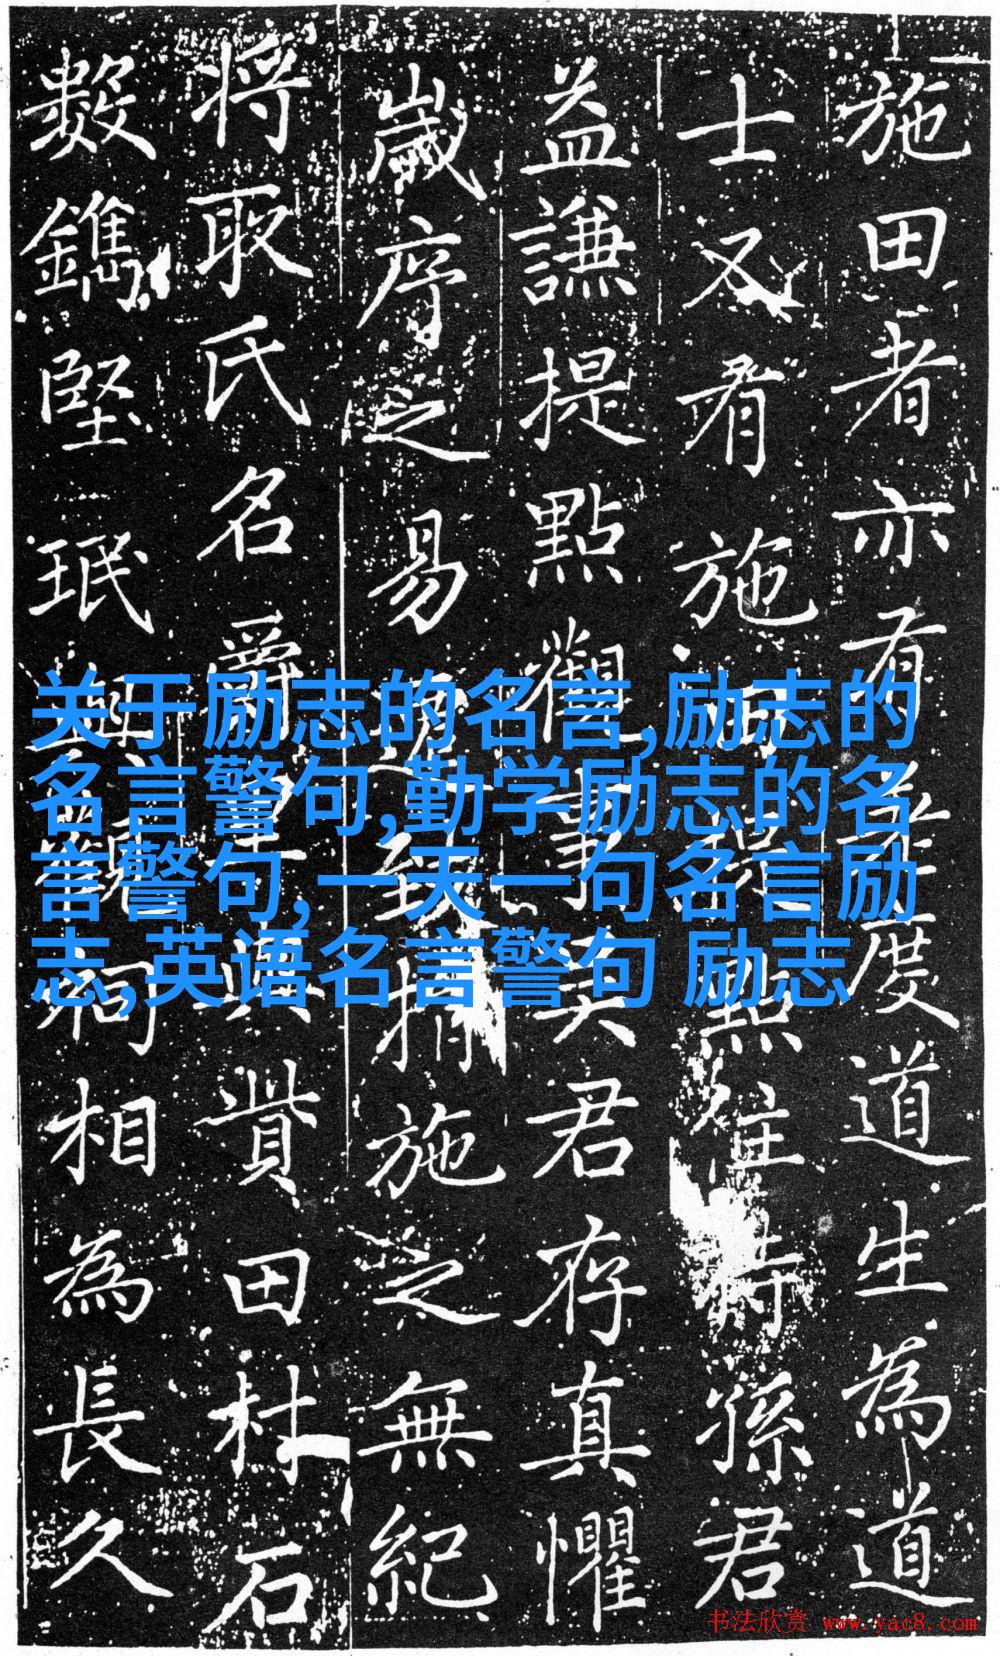 施田者亦有度道生為道
士又有施田點住持孫君
益謙提點觀事吴君存真懼
歲序之易捐施之無紀
將取氏名爵與貲田杜石
數鐫堅珉祠相為長久
关于励志的名言,励志的
名言警句,勤学励志的名
言警句,一天一句名言励
志,英语名言警句 励志
书法欣赏 www.yac8.com